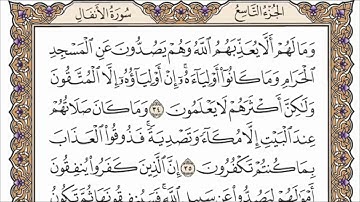 سُورَةُ الأَنفَالِ الجُزْءُ التَّاسِعُ
وَمَا لَهُمْ أَلَّا يُعَذِّبَهُمُ ٱللَّهُ وَهُمْ يَصُدُّونَ عَنِ ٱلْمَسْجِدِ
ٱلْحَرَامِ وَمَا كَانُوٓا۟ أَوْلِيَآءَهُۥٓ ۚ إِنْ أَوْلِيَآؤُهُۥٓ إِلَّا ٱلْمُتَّقُونَ
وَلَٰكِنَّ أَكْثَرَهُمْ لَا يَعْلَمُونَ ٣٤ وَمَا كَانَ صَلَاتُهُمْ
عِندَ ٱلْبَيْتِ إِلَّا مُكَآءً وَتَصْدِيَةً ۚ فَذُوقُوا۟ ٱلْعَذَابَ
بِمَا كُنتُمْ تَكْفُرُونَ ٣٥ إِنَّ ٱلَّذِينَ كَفَرُوا۟ يُنفِقُونَ
أَمْوَٰلَهُمْ لِيَصُدُّوا۟ عَن سَبِيلِ ٱللَّهِ ۚ فَسَيُنفِقُونَهَا ثُمَّ تَكُونُ